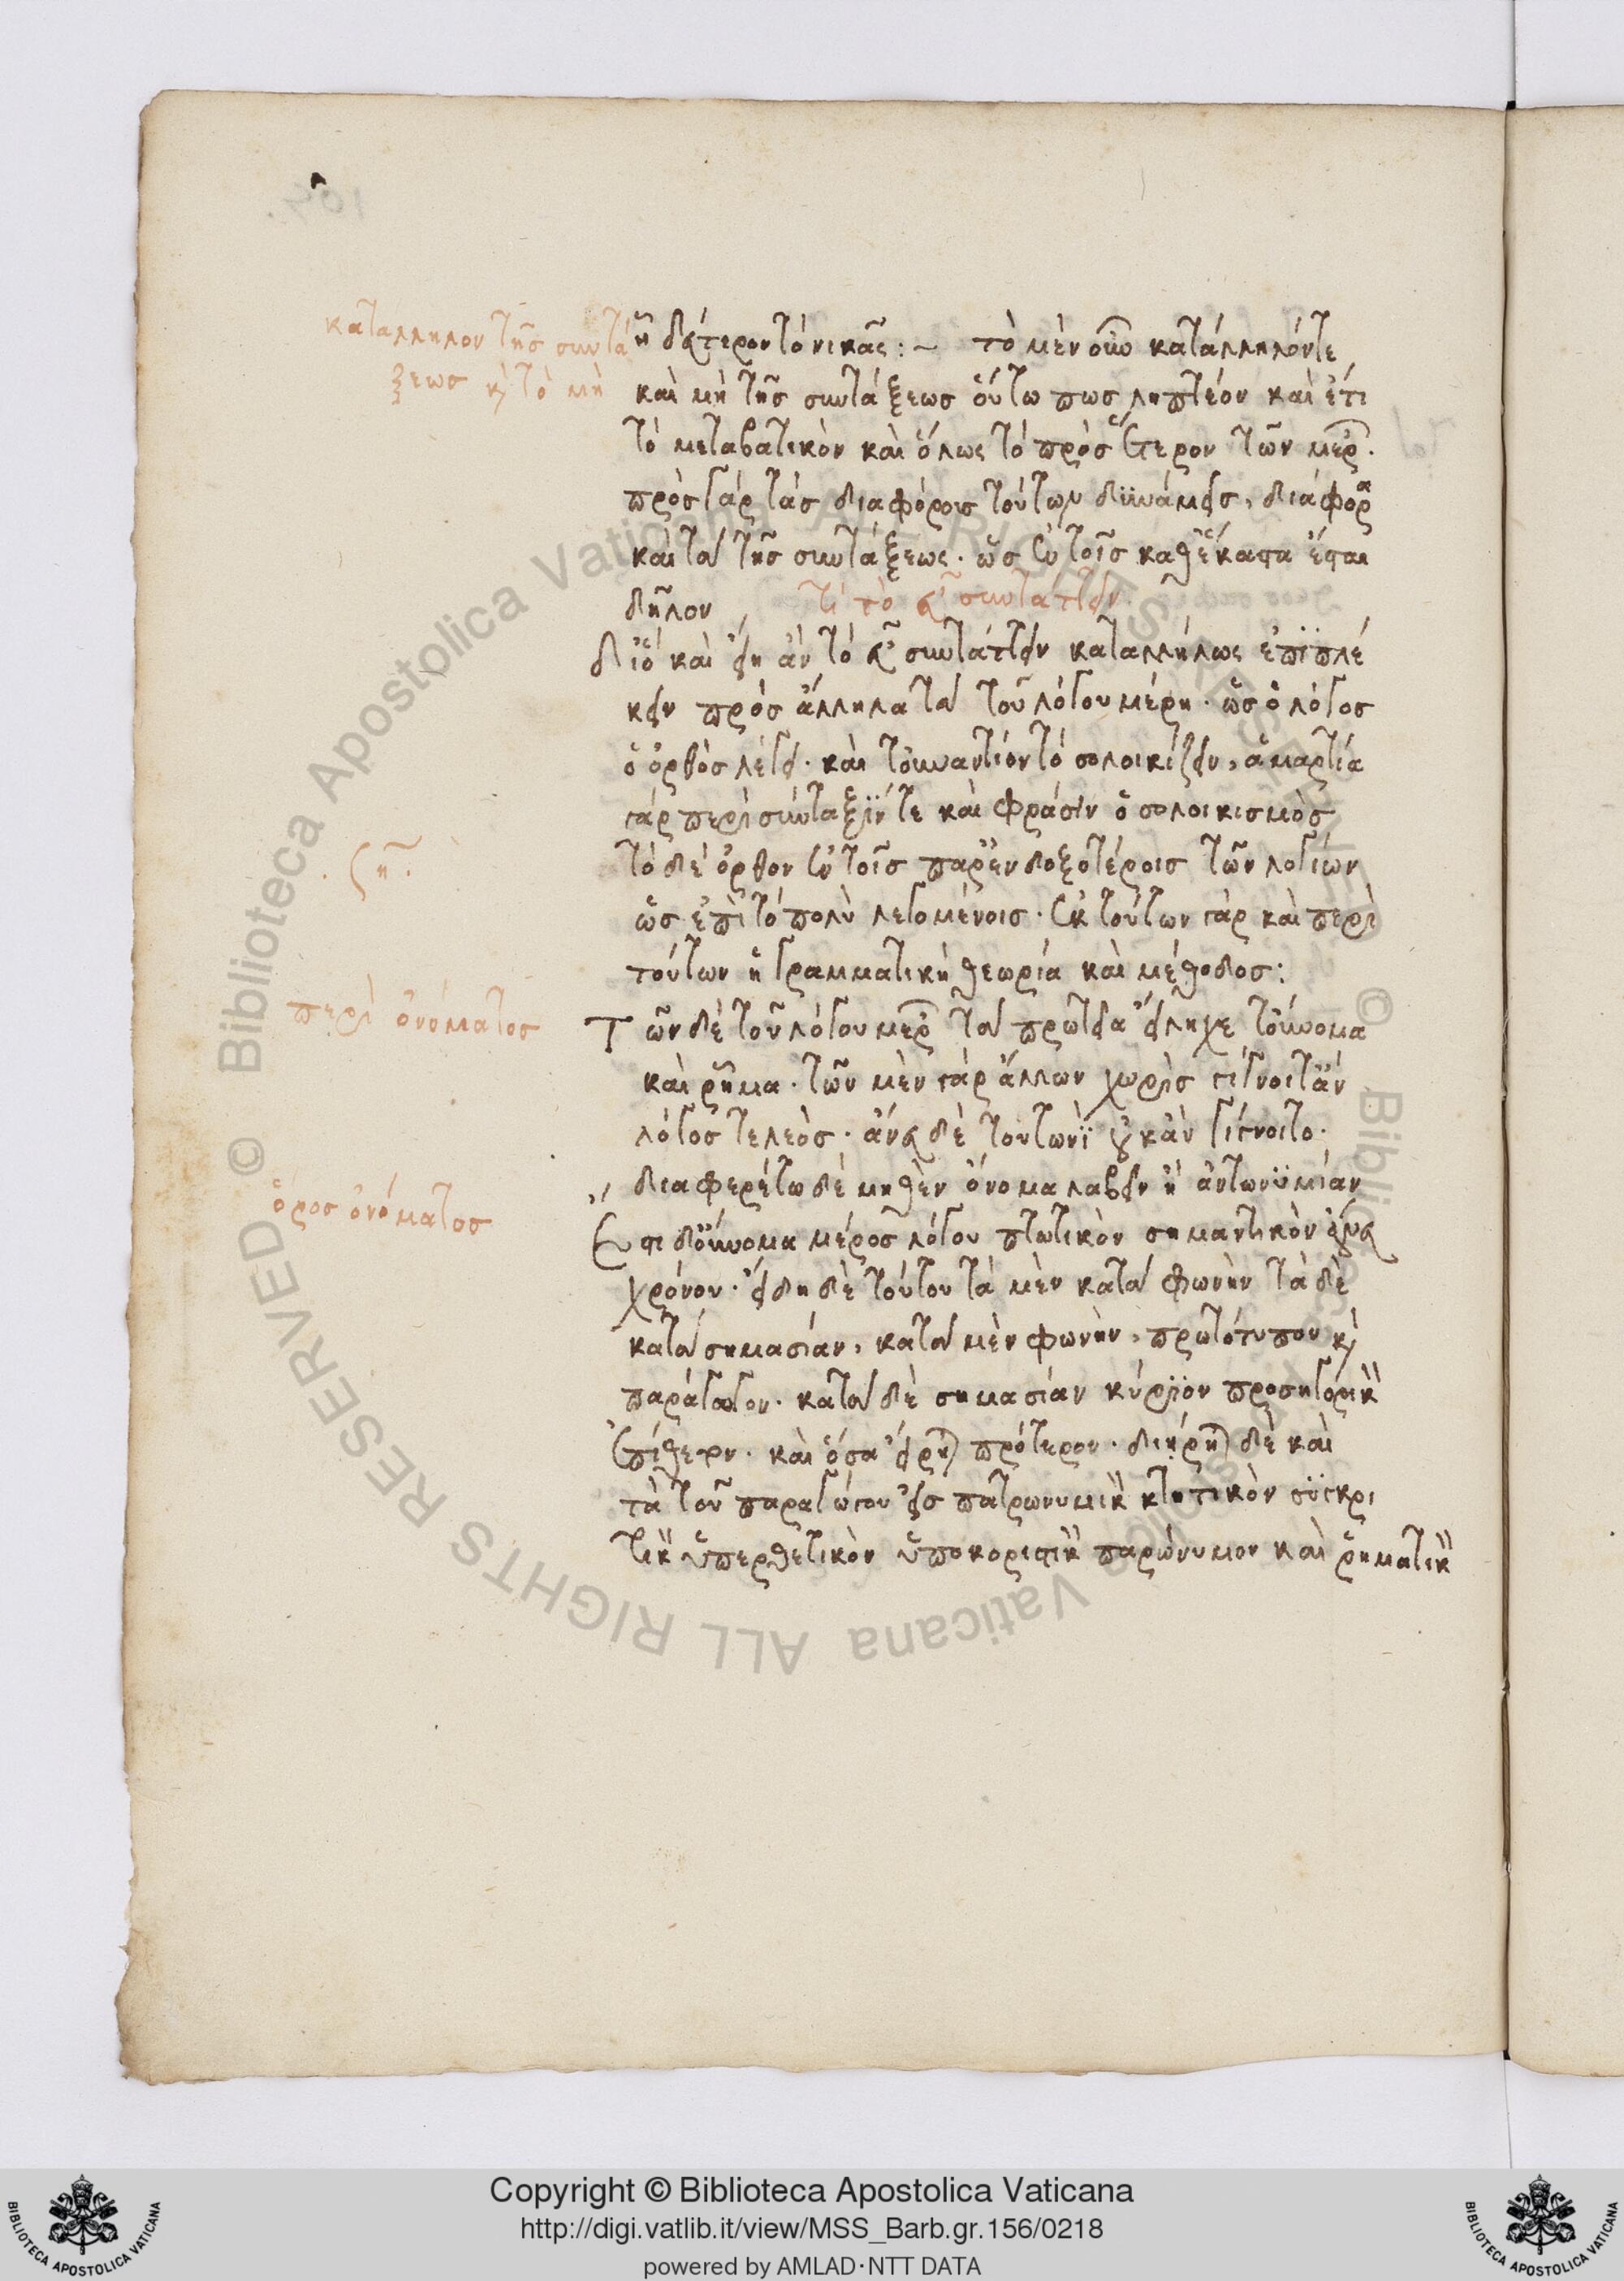 καταλληλον τῆς συντά
ξεως κ τὸ μὴ
ἢ δεύτερον τὸ νικᾶς :~ τὸ μὲν οὖν κατάλληλόντε
καὶ μὴ τῆς συντάξεως ὅυτω πως ληπτέον καὶ ἔτι
τὸ μεταβατικὸν καὶ ὅλως τὸ πρὸς ἕτερον τῶν μερ.
πρὸς γὰρ τὰς διαφόρους τούτων δϋνάμεις, διάφορα
καὶ τὰ τῆς συντάξεως. ὡς ἐν τοῖς καθέκαστα ἔσται
δῆλον
τί τὸ εὖ συντάττειν
διὸ καὶ εἴη ἂν τὸ εὖ συντάττειν καταλλήλως ἐπϊπλέ
κειν πρὸς ἄλληλα τὰ τοῦ λόγου μέρη. ὡς ὁ λόγος
ὁ ὀρθὸς λέγει. καὶ τοὐναντίον τὸ σολοικίζειν, ἁμαρτία
γὰρ περὶ σύνταξϊν τε καὶ φράσιν ὁ σολοικισμὸς
τὸ δὲ ὀρθον ἐν τοῖς παρ' ἐνδοξοτέροις τῶν λογίων
ὡς ἐπὶ τὸ πολὺ λεγομένοις. ἐκ τούτων γὰρ καὶ περὶ
τούτων ἡ γραμματικὴ θεωρία καὶ μέθοδος:
ση.
περὶ ὀνόματος
Τῶν δὲ τοῦ λόγου μερ τὰ πρωτεῖα εἴληχε τοὔνομα
καὶ ῥῆμα. τῶν μὲν γὰρ ἄλλων χωρὶς γίγνοιτἂν
λόγος τελεὸς. ἄνευ δὲ τουτωνῒ οὐκ ἂν γίγνοιτο.
διαφερέτω δὲ μηθὲν ὄνομα λαβεῖν ἢ ἀντωνϋμίαν
ὅρος ὀνόματος
Ἔστι δ' οὔνομα μέρος λόγου πτωτικὸν σημαντικὸν ἄνευ
χρόνου. εἴδη δὲ τούτου τὰ μὲν κατὰ φωνὴν τὰ δὲ
κατὰ σημασίαν, κατὰ μὲν φωνὴν, πρωτότυπον κ
παράγωγον. κατὰ δὲ σημασίαν κύρϊον προσηγορικ
ἐπίθετον. καὶ ὅσα εἴρη πρότερον. διῄρη δὲ καὶ
τὰ τοῦ παραγώγου εἰς πατρωνυμικ κτητικὸν σϋγκρι
τικ ὑπερθετικὸν ὑποκοριστικ παρώνυμον καὶ ῥηματικ
Copyright © Biblioteca Apostolica Vaticana
http://digi.vatlib.it/view/MSS_Barb.gr.156/0218
powered by AMLAD·NTT DATA
BIBLIOTECA APOSTOLICA VATICANA
BIBLIOTECA APOSTOLICA VATICANA
© Biblioteca Apostolica Vaticana ALL RIGHTS RESERVED
© Biblioteca Apostolica Vaticana ALL RIGHTS RESERVED